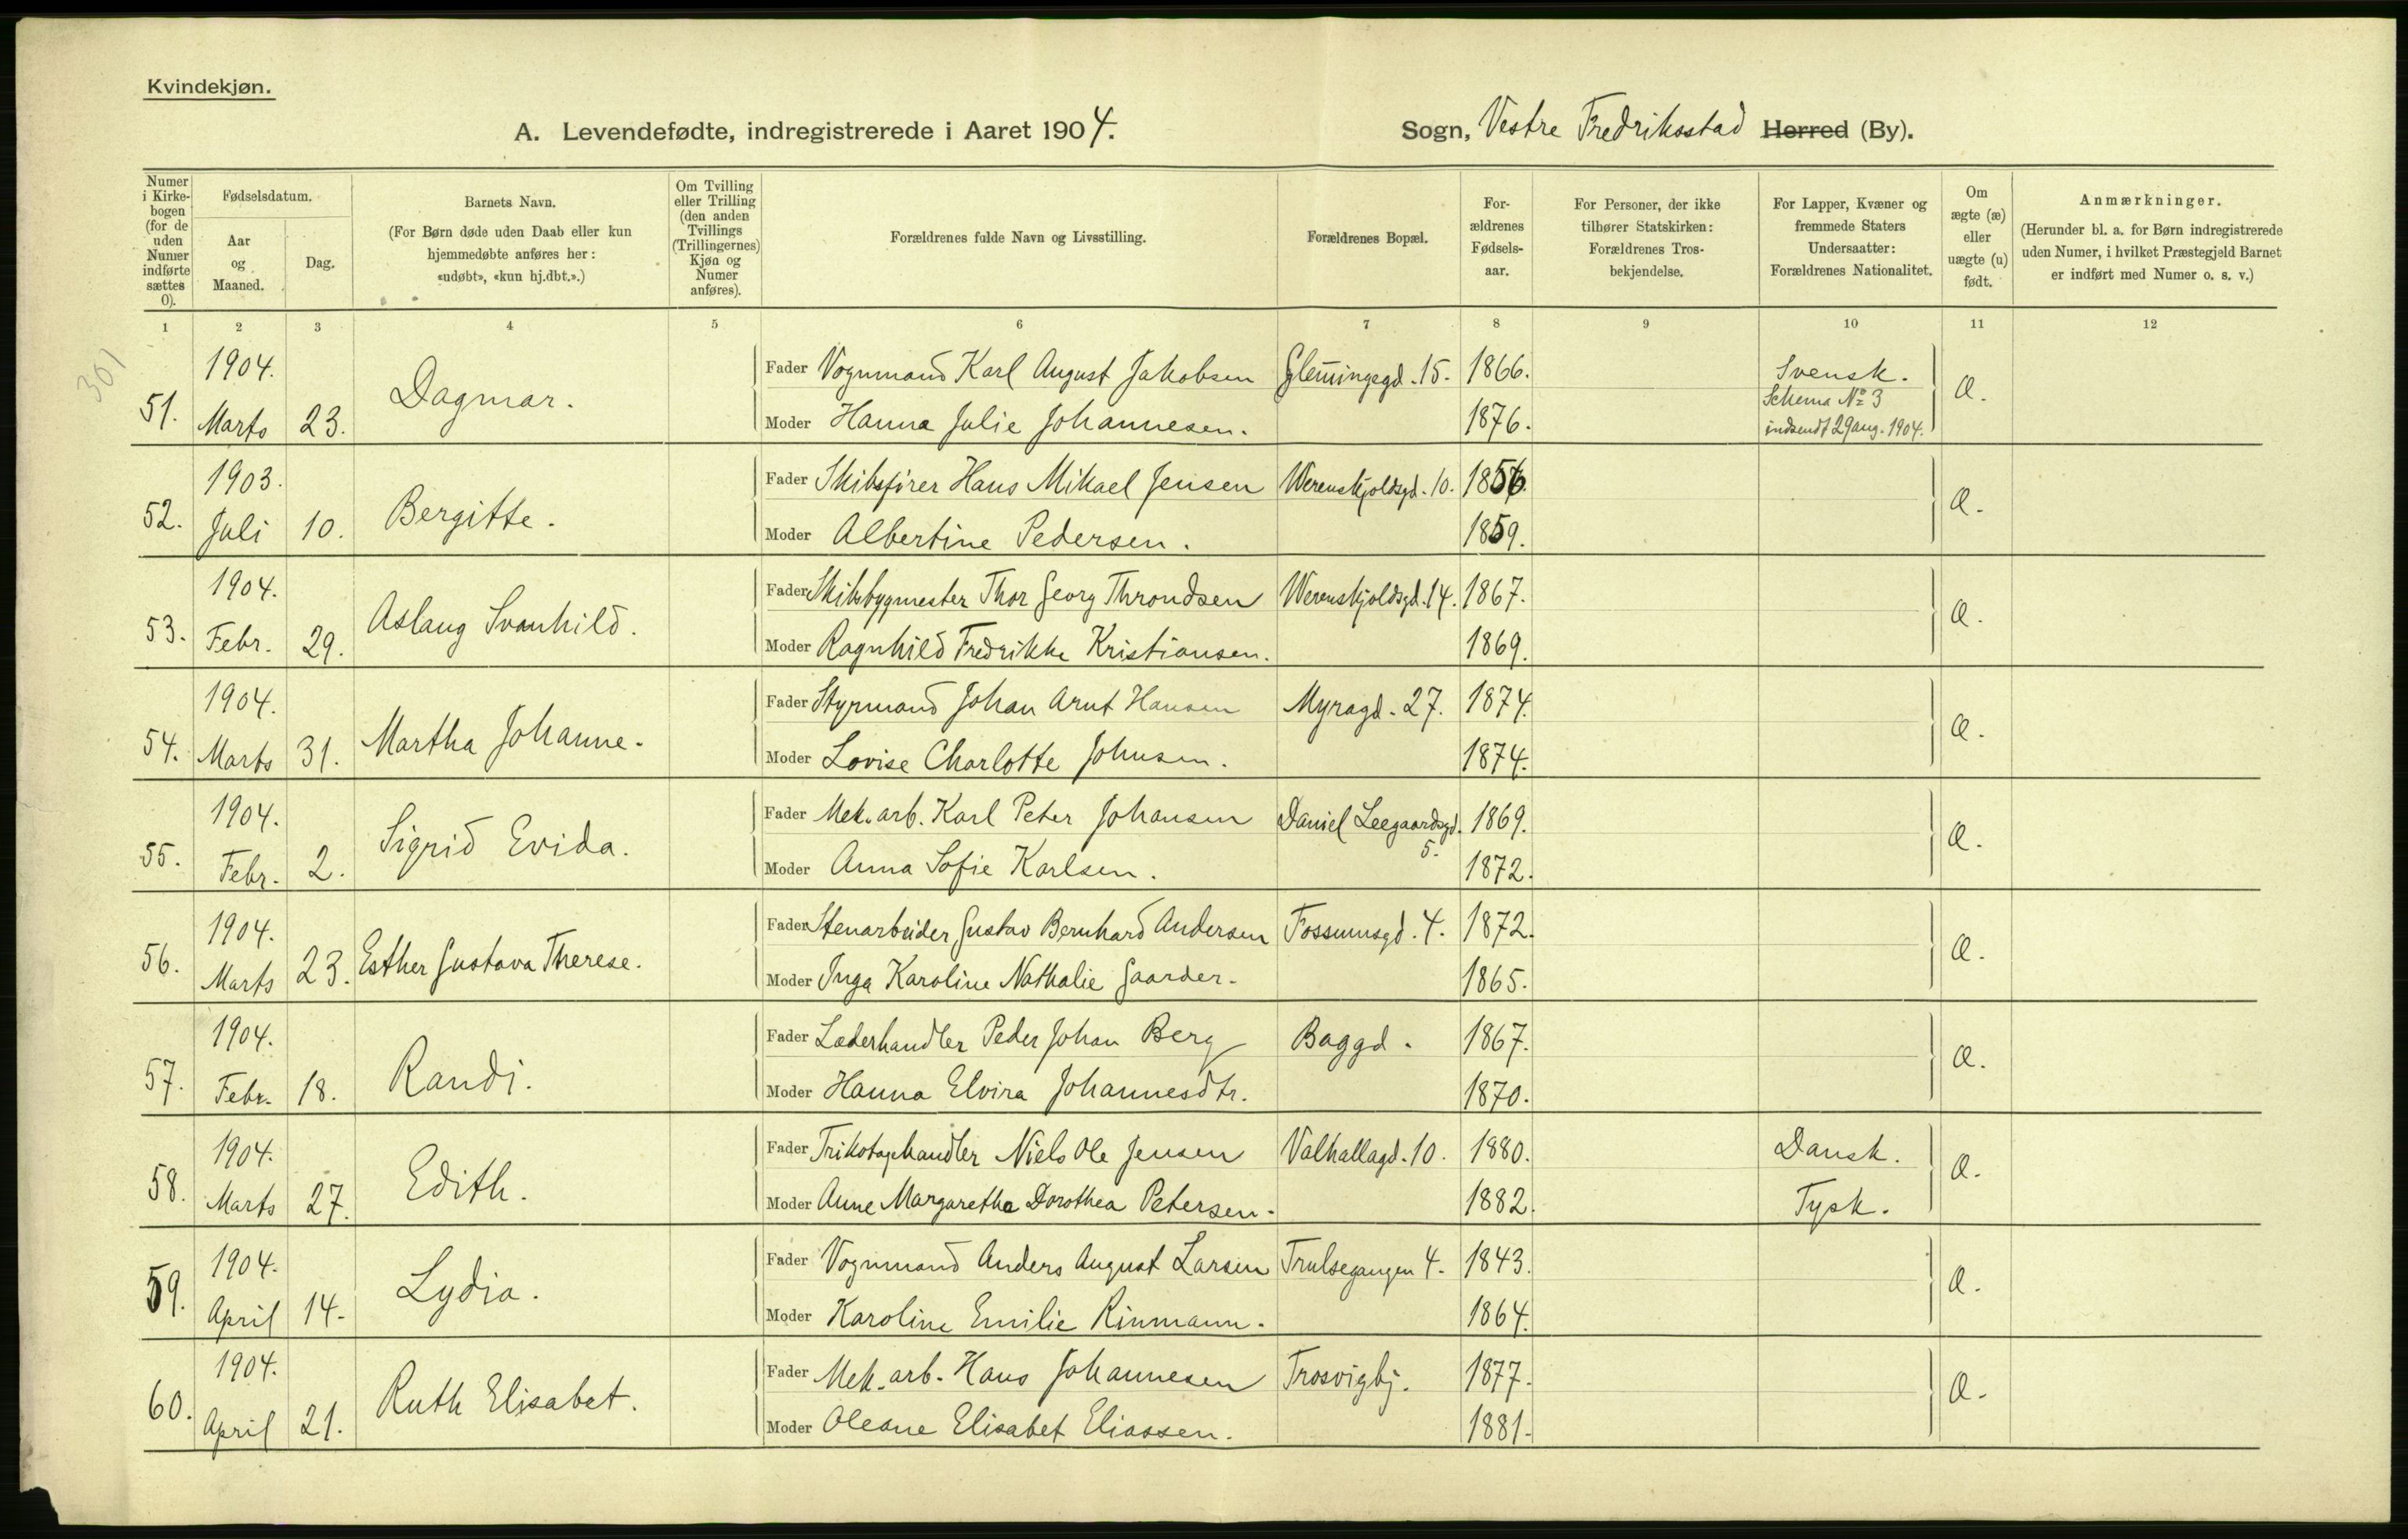 Kvindekjøn.
A. Levendefødte, indregistrerede i Aaret 1904.
Sogn, Vestre Fredriksstad Herred (By).
Numer i Kirkebogen (for de uden Numer indførte sættes 0).
Fødselsdatum.
Aar og Maaned.
Dag.
Barnets Navn.
(For Børn døde uden Daab eller kun hjemmedøbte anføres her: «udøbt», «kun hj.dbt.».)
Om Tvilling eller Trilling (den anden Tvillings (Trillingernes) Kjøn og Numer anføres).
Forældrenes fulde Navn og Livsstilling.
Forældrenes Bopæl.
Forældrenes Fødselsaar.
For Personer, der ikke tilhører Statskirken: Forældrenes Trosbekjendelse.
For Lapper, Kvæner og fremmede Staters Undersaatter: Forældrenes Nationalitet.
Om ægte (æ) eller uægte (u) født.
Anmærkninger.
(Herunder bl. a. for Børn indregistrerede uden Numer, i hvilket Præstegjeld Barnet er indført med Numer o. s. v.)
1 2 3 4 5 6 7 8 9 10 11 12
301
51. 1904. Marts 23. Dagmar.
Fader Vognmand Karl August Jakobsen Glemingegd. 15. 1866. Svensk. Æ.
Schema No 3
Moder Hanna Julie Johannesen. 1876. indsendt 29 aug. 1904.
52. 1903. Juli 10. Bergitte.
Fader Skibsfører Hans Mikael Jensen Werenskjoldsgd. 10. 1856. Æ.
Moder Albertine Pedersen. 1859.
53. 1904. Febr. 29. Aslaug Svanhild.
Fader Skibsbygmester Thor Georg Throndsen Werenskjoldsgd. 14. 1867. Æ.
Moder Ragnhild Fredrikke Kristiansen. 1869.
54. 1904. Marts 31. Martha Johanne.
Fader Styrmand Johan Arnt Hansen Myragd. 27. 1874. Æ.
Moder Lovise Charlotte Johnsen. 1874.
55. 1904. Febr. 2. Sigrid Evida.
Fader Mek. arb. Karl Peter Johansen Daniel Leegaardsgd. 5. 1869. Æ.
Moder Anna Sofie Karlsen. 1872.
56. 1904. Marts 23. Esther Gustava Therese.
Fader Stenarbeider Gustav Bernhard Andersen Fossumsgd. 4. 1872. Æ.
Moder Inga Karoline Nathalie Gaarder. 1865.
57. 1904. Febr. 18. Randi.
Fader Læderhandler Peder Johan Berg Baggd. 1867. Æ.
Moder Hanna Elvira Johannesdtr. 1870.
58. 1904. Marts 27. Edith.
Fader Trikotagehandler Niels Ole Jensen Valhallagd. 10. 1880. Dansk. Æ.
Moder Anne Margaretha Dorothea Petersen. 1882. Tysk.
59. 1904. April 14. Lydia.
Fader Vognmand Anders August Larsen Trulsegangen 4. 1843. Æ.
Moder Karoline Emilie Rinmann. 1864.
60. 1904. April 21. Ruth Elisabet.
Fader Mek. arb. Hans Johannesen Trosvigbj. 1877. Æ.
Moder Oleane Elisabet Eliassen. 1881.